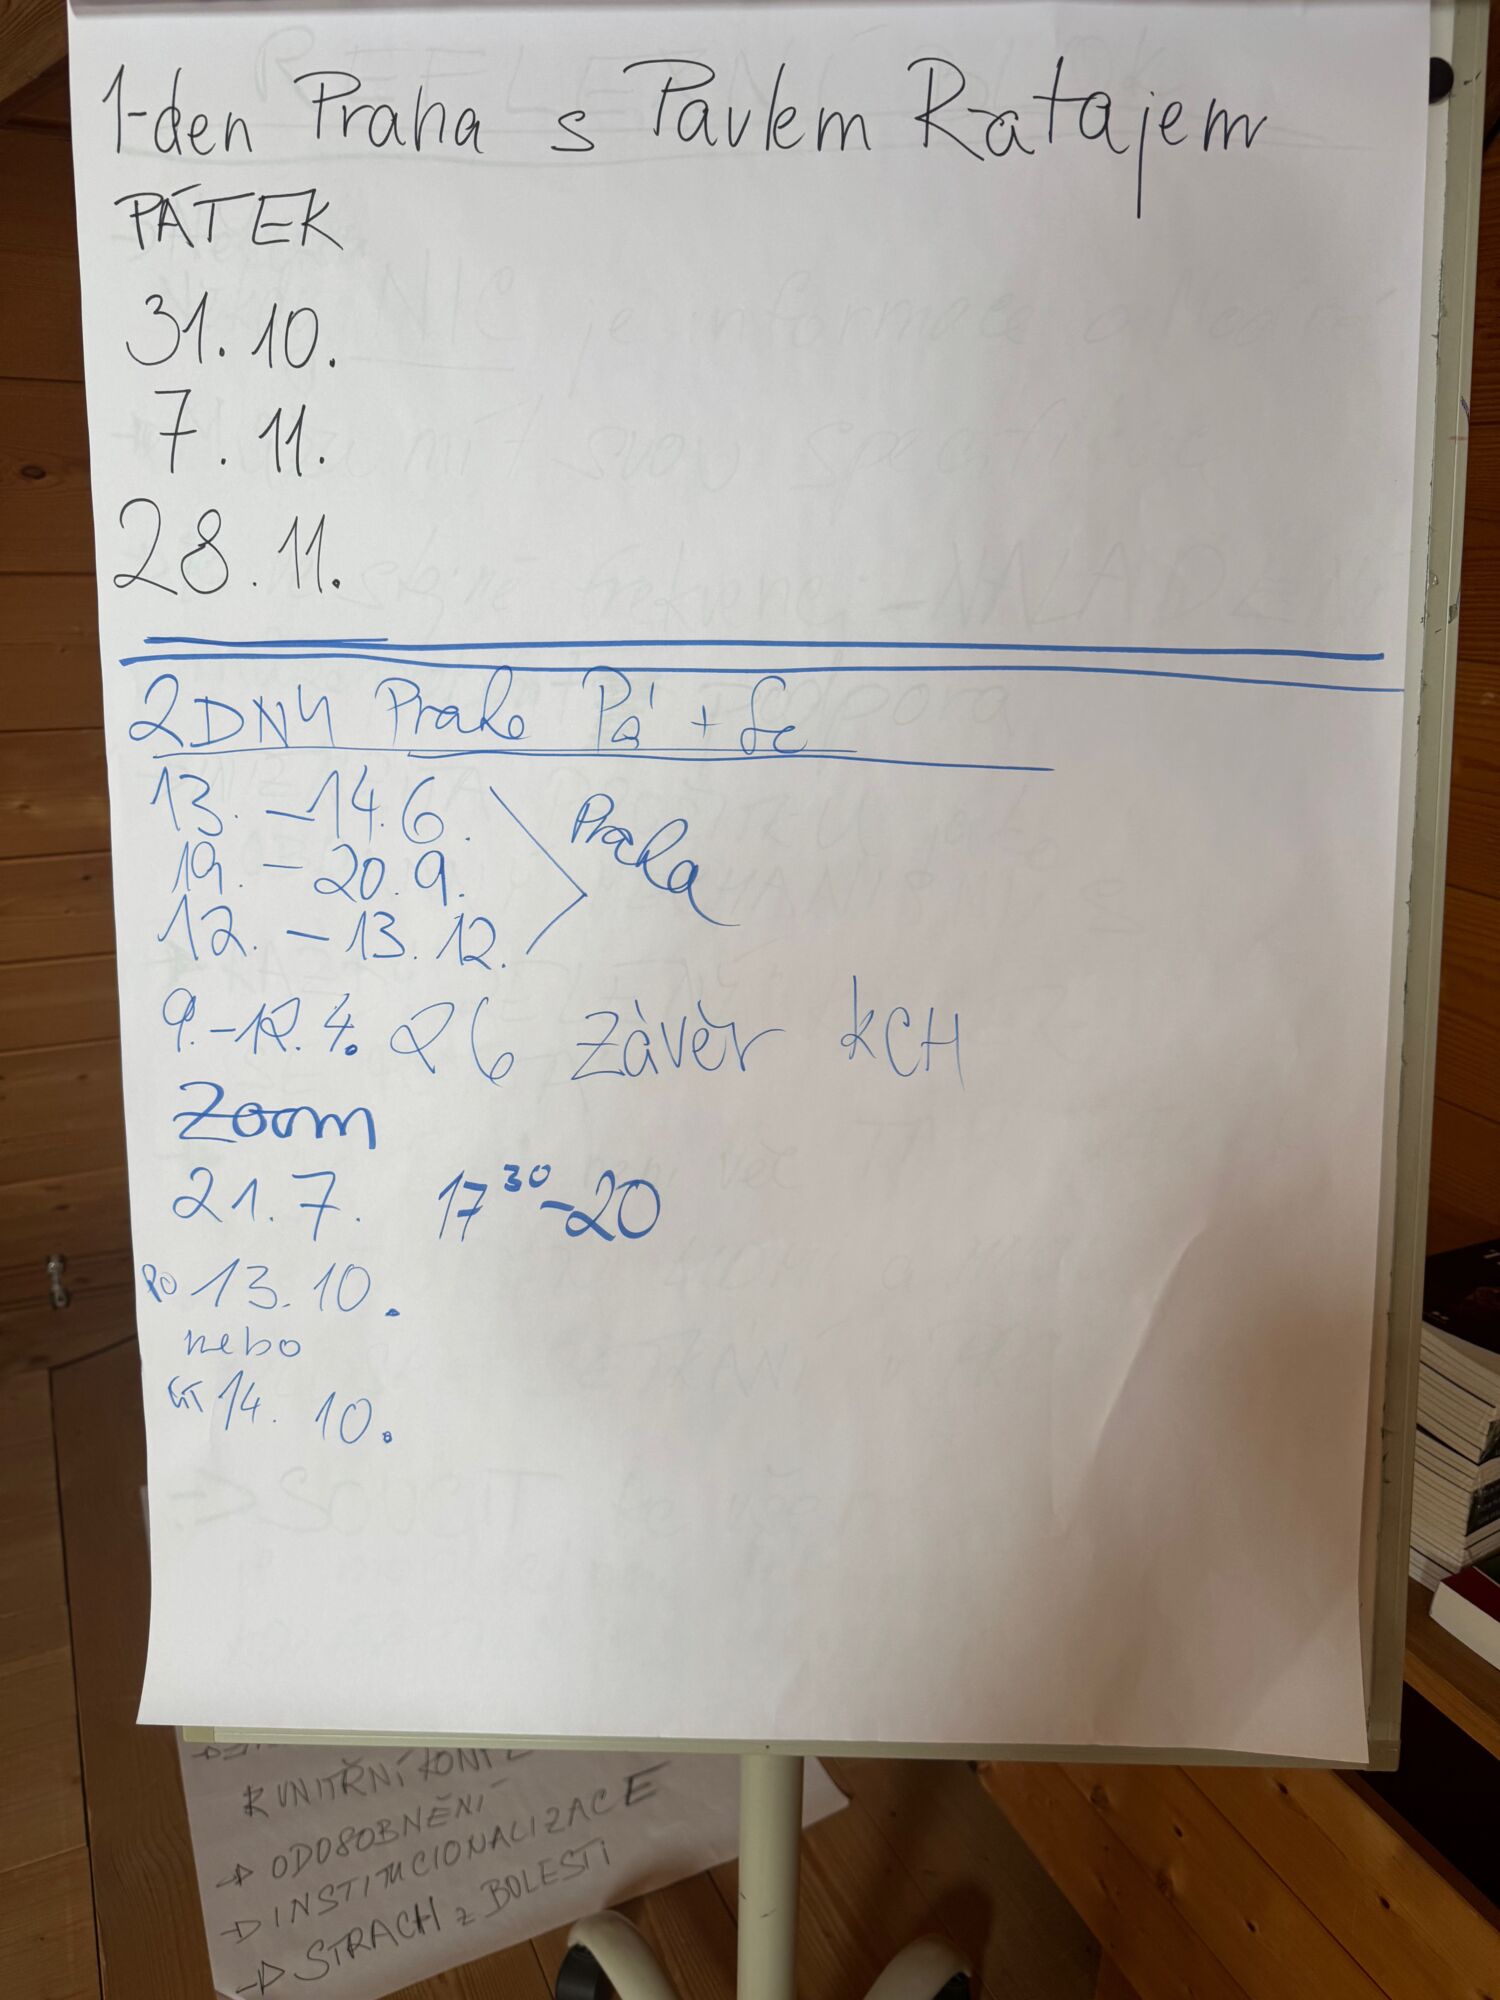 1-den Praha s Pavlem Ratajem
PÁTEK
31. 10.
7. 11.
28. 11.
2 DNY Praha Pá + So
13. - 14. 6.
19. - 20. 9.
12. - 13. 12.
Praha
9. - 12. 4. 26 Závěr KCH
Zoom
21. 7. 17³⁰-20
Po 13. 10.
nebo
ÚT 14. 10.
→ ODOSOBNĚNÍ
→ INSTITUCIONALIZACE
→ STRACH z BOLESTI